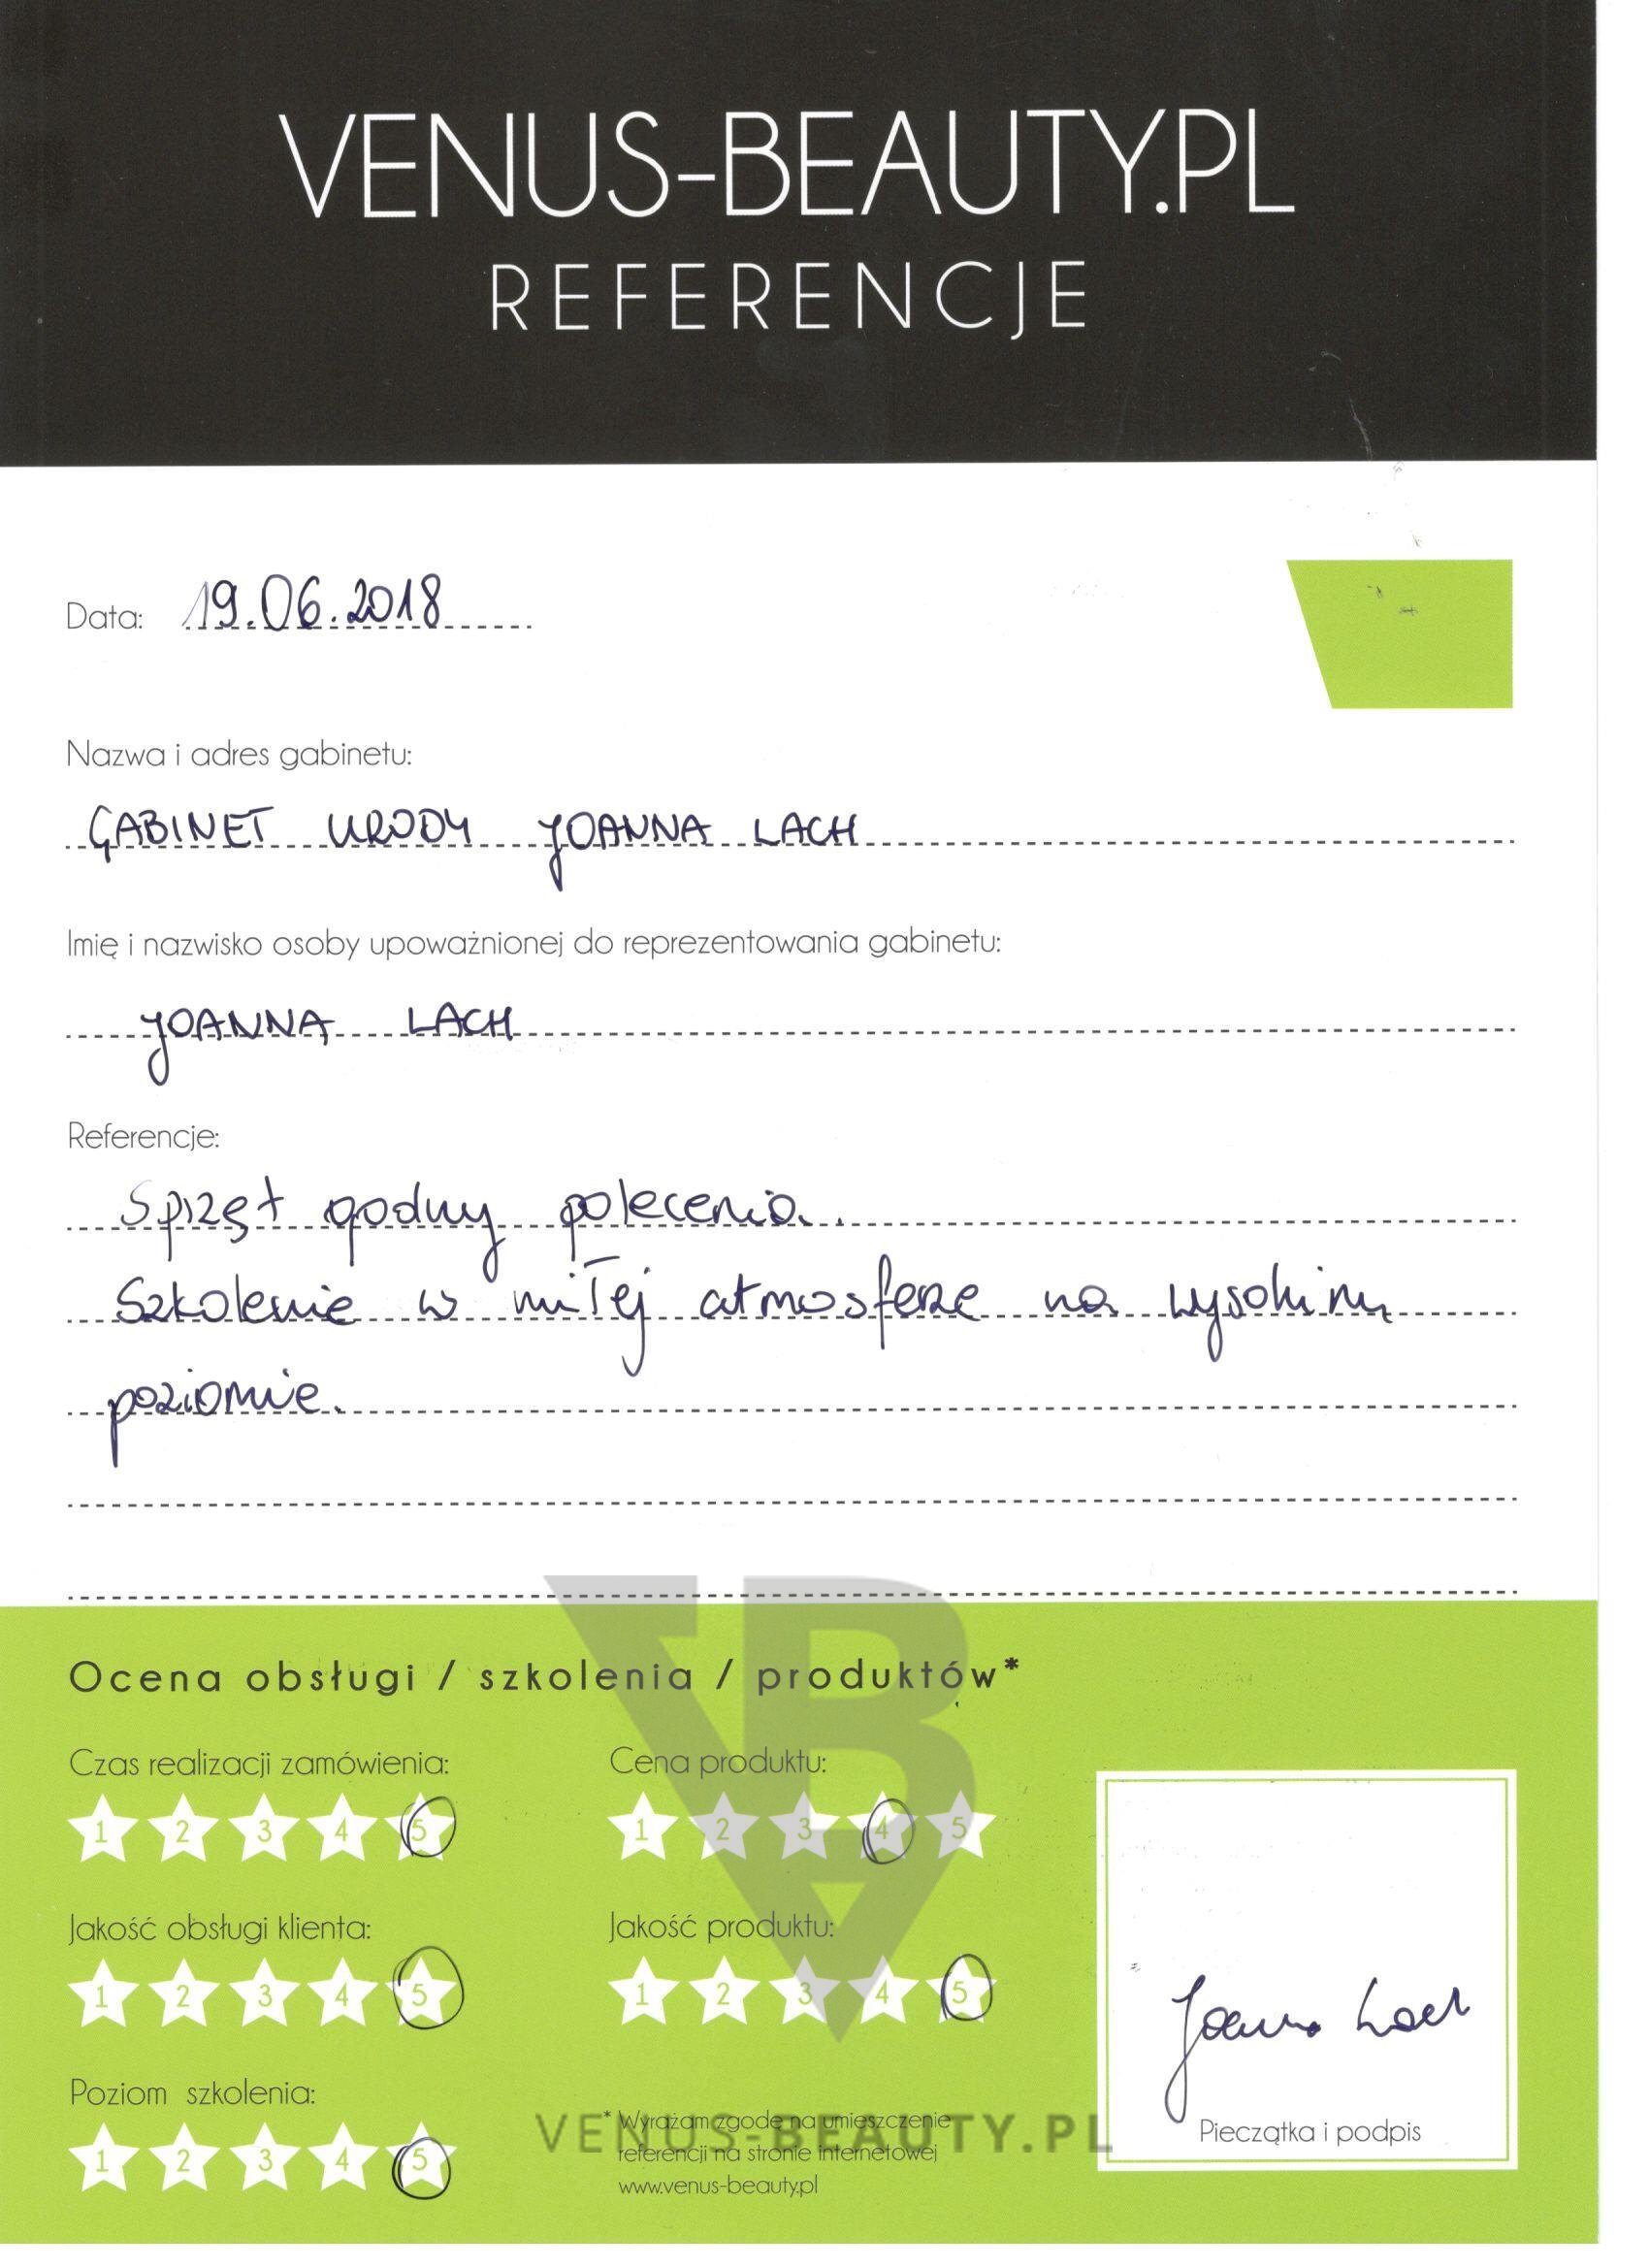 VENUS-BEAUTY.PL
REFERENCJE
Data: 19.06.2018
Nazwa i adres gabinetu:
GABINET URODY JOANNA LACH
Imię i nazwisko osoby upoważnionej do reprezentowania gabinetu:
JOANNA LACH
Referencje:
Sprzęt godny polecenia.
Szkolenie w miłej atmosferze na wysokim
poziomie.
Ocena obsługi / szkolenia / produktów*
Czas realizacji zamówienia:
1 2 3 4 5
Cena produktu:
1 2 3 4 5
Jakość obsługi klienta:
1 2 3 4 5
Jakość produktu:
1 2 3 4 5
Poziom szkolenia:
1 2 3 4 5
* Wyrażam zgodę na umieszczenie
referencji na stronie internetowej
www.venus-beauty.pl
VENUS-BEAUTY.PL
Joanna Lach
Pieczątka i podpis